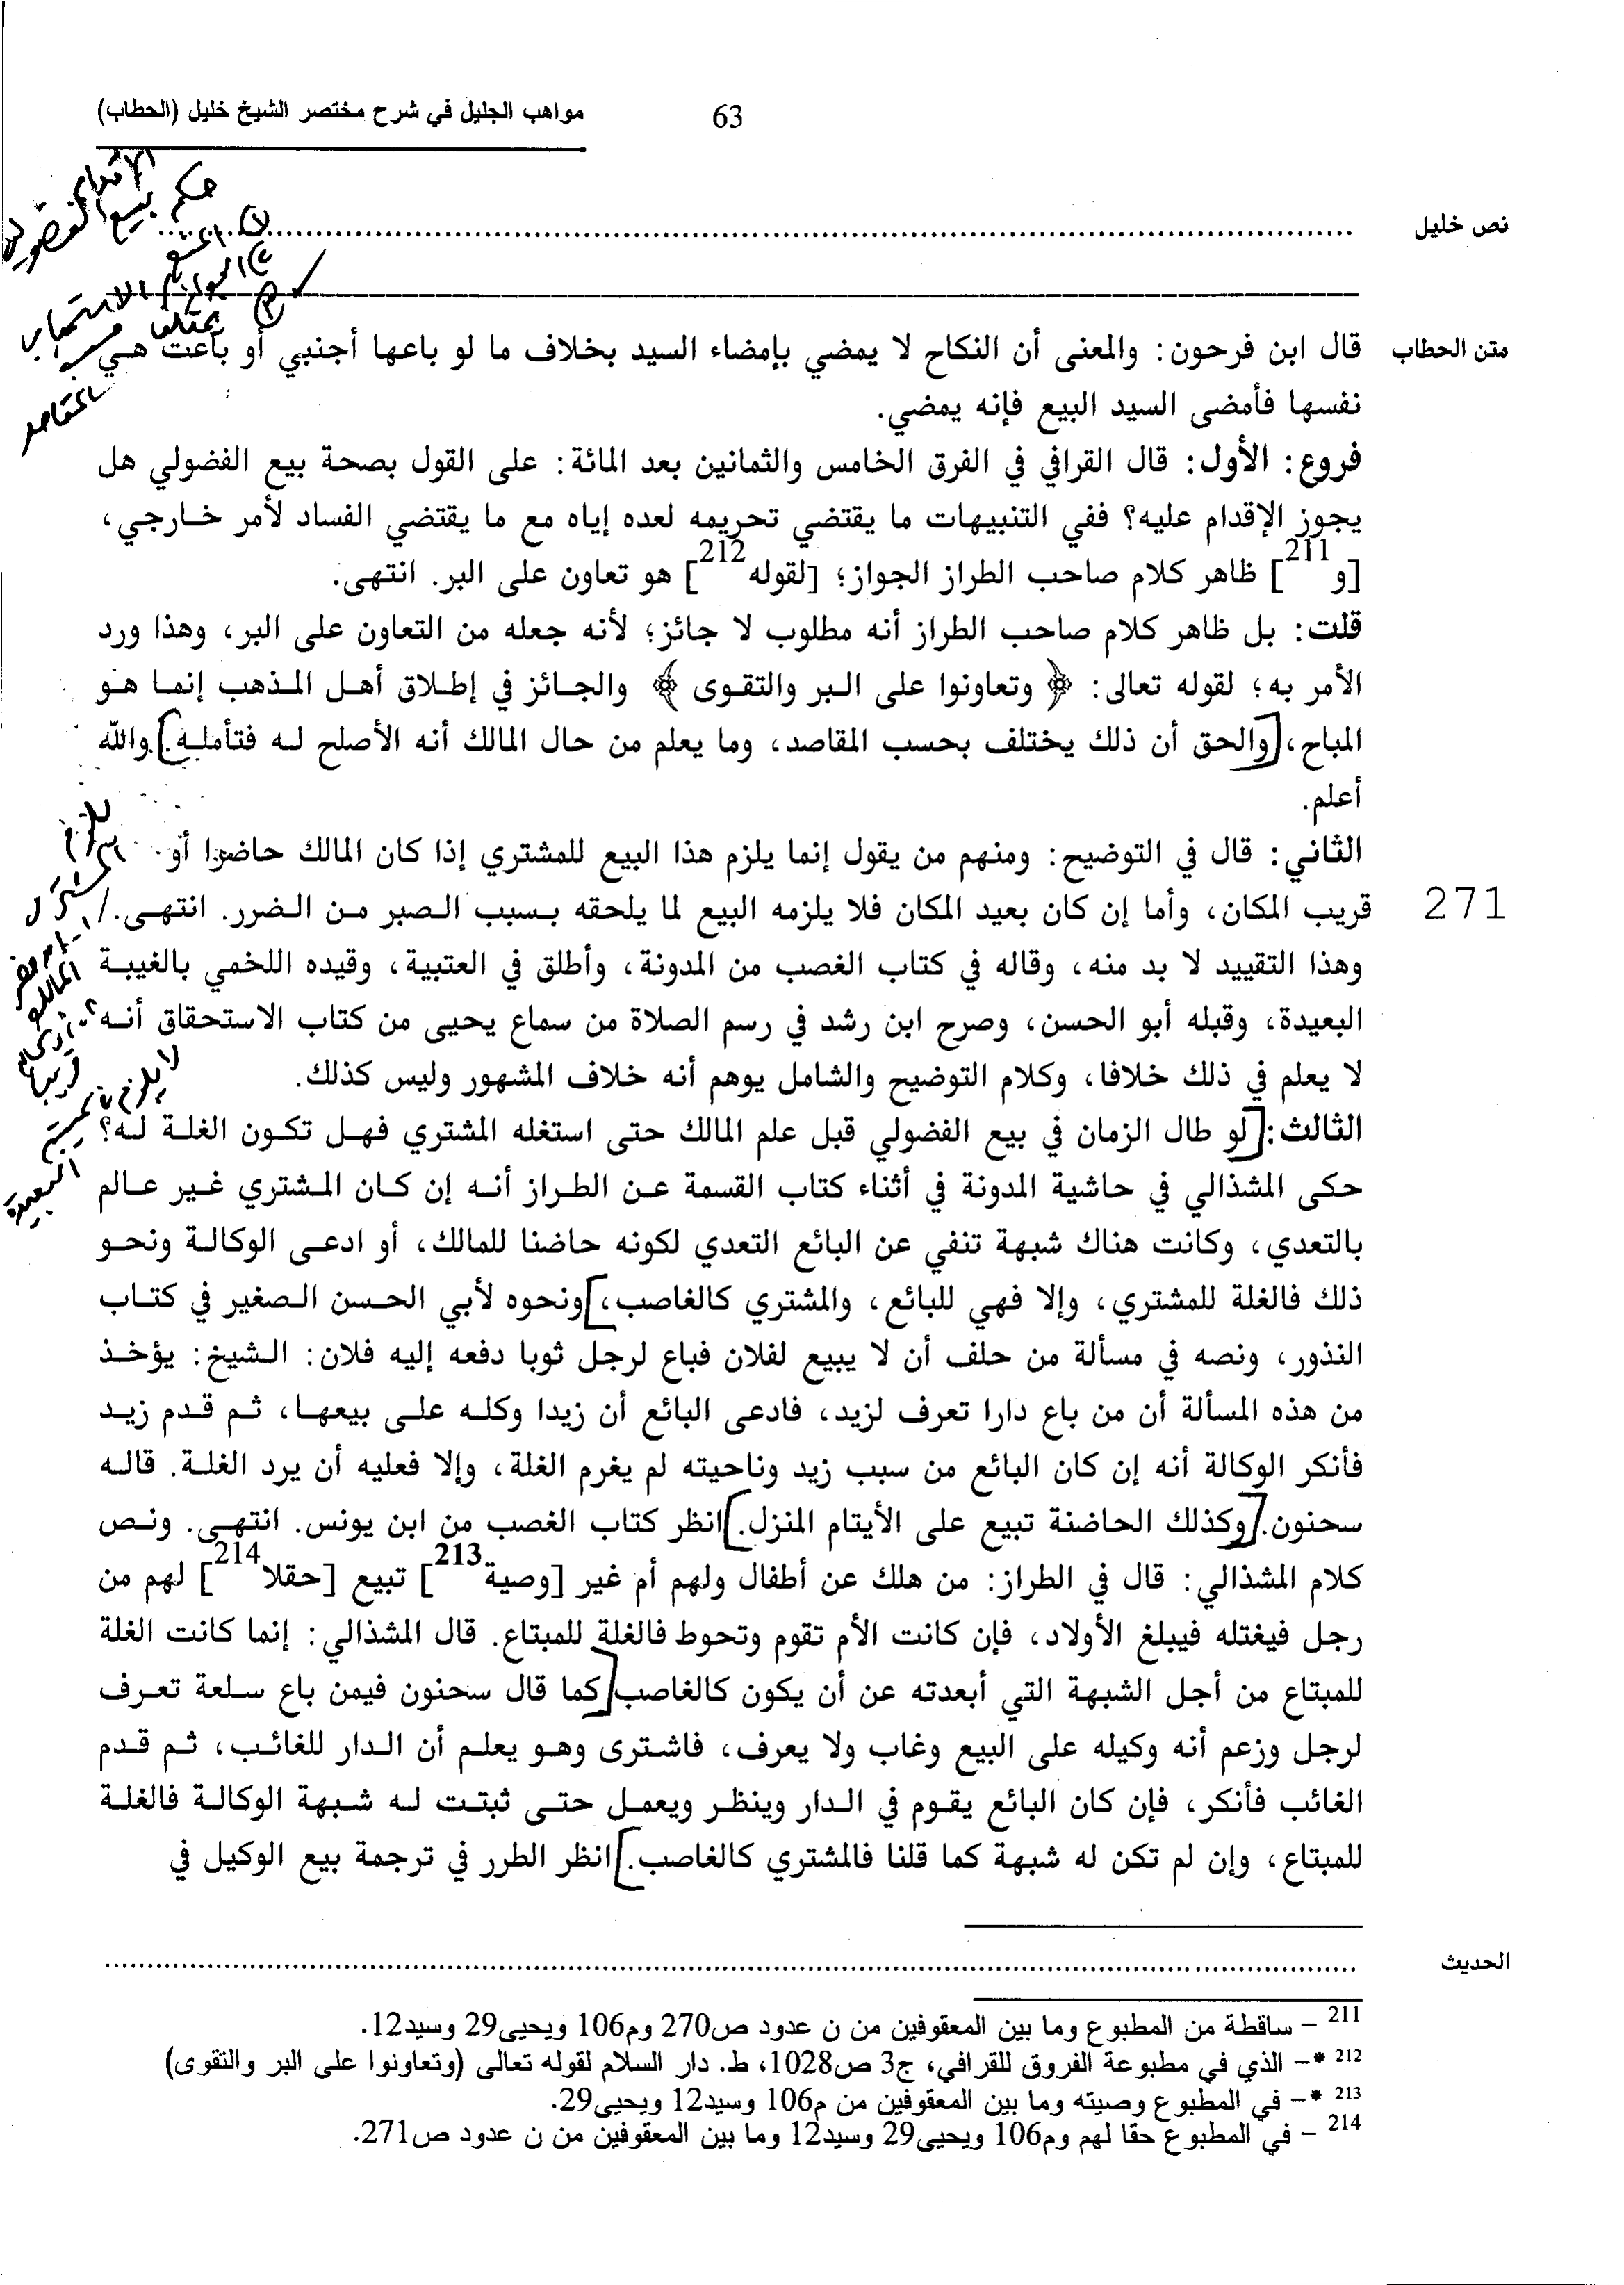 مواهب الجليل في شرح مختصر الشيخ خليل (الحطاب)
63
حكم بيع الفضولي
نص خليل ................
① المنع
② الجواز
الاستحباب
③ يختلف
بحسب
المقاصد
متن الحطاب قال ابن فرحون: والمعنى أن النكاح لا يمضي بإمضاء السيد بخلاف ما لو باعها أجنبي أو باعت هي
نفسها فأمضى السيد البيع فإنه يمضي.
فروع: الأول: قال القرافي في الفرق الخامس والثمانين بعد المائة: على القول بصحة بيع الفضولي هل
يجوز الإقدام عليه؟ ففي التنبيهات ما يقتضي تحريمه لعده إياه مع ما يقتضي الفساد لأمر خارجي،
[و211] ظاهر كلام صاحب الطراز الجواز؛ [لقوله212] هو تعاون على البر. انتهى.
قلت: بل ظاهر كلام صاحب الطراز أنه مطلوب لا جائز؛ لأنه جعله من التعاون على البر، وهذا ورد
الأمر به؛ لقوله تعالى: ﴿ وتعاونوا على البر والتقوى ﴾ والجائز في إطلاق أهل المذهب إنما هو
المباح، [والحق أن ذلك يختلف بحسب المقاصد، وما يعلم من حال المالك أنه الأصلح له فتأمله.] والله
أعلم.
الثاني: قال في التوضيح: ومنهم من يقول إنما يلزم هذا البيع للمشتري إذا كان المالك حاضرا أو
271 قريب المكان، وأما إن كان بعيد المكان فلا يلزمه البيع لما يلحقه بسبب الصبر من الضرر. انتهى./
وهذا التقييد لا بد منه، وقاله في كتاب الغصب من المدونة، وأطلق في العتبية، وقيده اللخمي بالغيبة
البعيدة، وقبله أبو الحسن، وصرح ابن رشد في رسم الصلاة من سماع يحيى من كتاب الاستحقاق أنه
لا يعلم في ذلك خلافا، وكلام التوضيح والشامل يوهم أنه خلاف المشهور وليس كذلك.
يلزم
المالك
قريبا
لا يلزم
البعيدة
الثالث: [لو طال الزمان في بيع الفضولي قبل علم المالك حتى استغله المشتري فهل تكون الغلة له؟
حكى المشذالي في حاشية المدونة في أثناء كتاب القسمة عن الطراز أنه إن كان المشتري غير عالم
بالتعدي، وكانت هناك شبهة تنفي عن البائع التعدي لكونه حاضنا للمالك، أو ادعى الوكالة ونحو
ذلك فالغلة للمشتري، وإلا فهي للبائع، والمشتري كالغاصب،] ونحوه لأبي الحسن الصغير في كتاب
النذور، ونصه في مسألة من حلف أن لا يبيع لفلان فباع لرجل ثوبا دفعه إليه فلان: الشيخ: يؤخذ
من هذه المسألة أن من باع دارا تعرف لزيد، فادعى البائع أن زيدا وكله على بيعها، ثم قدم زيد
فأنكر الوكالة أنه إن كان البائع من سبب زيد وناحيته لم يغرم الغلة، وإلا فعليه أن يرد الغلة. قاله
سحنون. [وكذلك الحاضنة تبيع على الأيتام المنزل.] انظر كتاب الغصب من ابن يونس. انتهى. ونص
كلام المشذالي: قال في الطراز: من هلك عن أطفال ولهم أم غير [وصية213] تبيع [حقلا214] لهم من
رجل فيغتله فيبلغ الأولاد، فإن كانت الأم تقوم وتحوط فالغلة للمبتاع. قال المشذالي: إنما كانت الغلة
للمبتاع من أجل الشبهة التي أبعدته عن أن يكون كالغاصب [كما قال سحنون فيمن باع سلعة تعرف
لرجل وزعم أنه وكيله على البيع وغاب ولا يعرف، فاشترى وهو يعلم أن الدار للغائب، ثم قدم
الغائب فأنكر، فإن كان البائع يقوم في الدار وينظر ويعمل حتى ثبتت له شبهة الوكالة فالغلة
للمبتاع، وإن لم تكن له شبهة كما قلنا فالمشتري كالغاصب.] انظر الطرر في ترجمة بيع الوكيل في
الحديث ................
211 – ساقطة من المطبوع وما بين المعقوفين من ن عدود ص270 وم106 ويحيى29 وسيد12.
212 *– الذي في مطبوعة الفروق للقرافي، ج3 ص1028، ط. دار السلام لقوله تعالى (وتعاونوا على البر والتقوى)
213 *– في المطبوع وصيته وما بين المعقوفين من م106 وسيد12 ويحيى29.
214 – في المطبوع حقا لهم وم106 ويحيى29 وسيد12 وما بين المعقوفين من ن عدود ص271.